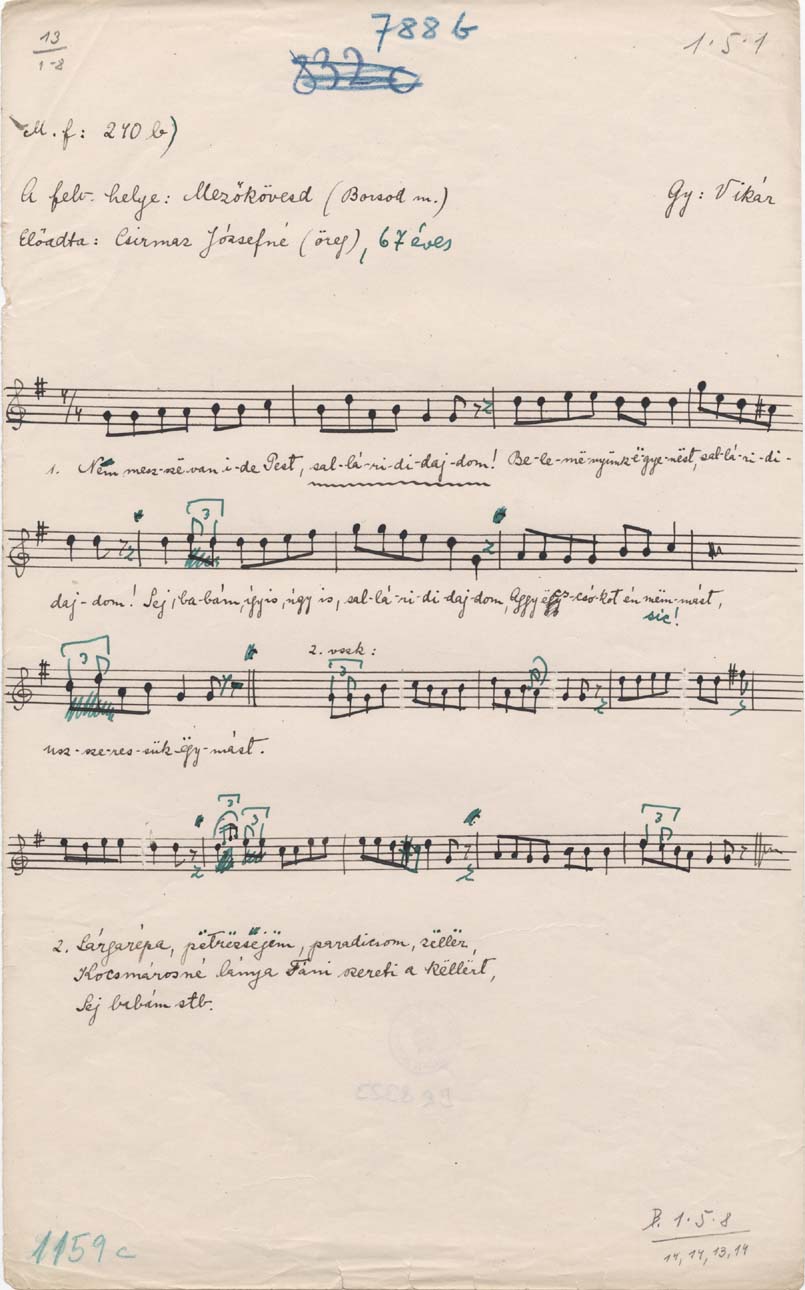 13
1-8
788 b
832 c
1·5·1
M. f: 240 b)
A felv. helye: Mezőkövesd (Borsod m.)
Gy: Vikár
Előadta: Csirmaz Józsefné (öreg), 67 éves
4/4
1. Ném mesz-szë van i-de Pest, sal-lá-ri-di-daj-dom! Be-le-mënyünk ëgye-nëst, sal-lá-ri-di-
3
daj-dom! Sej, ba-bám, így is, úgy is, sal-lá-ri-di daj-dom, Aggy ëgy csó-kot én nëm-mást,
sic!
3
2. vszk:
3
usz-sze-res-sük ëgy-mást.
3
3
3
2. Sárgarépa, pëtrëzsëjëm, paradicsom, zëllër,
Kocsmárosné lánya Fáni szereti a këllërt,
Sej babám stb.
1159 c
B. 1·5·8
14, 14, 13, 14